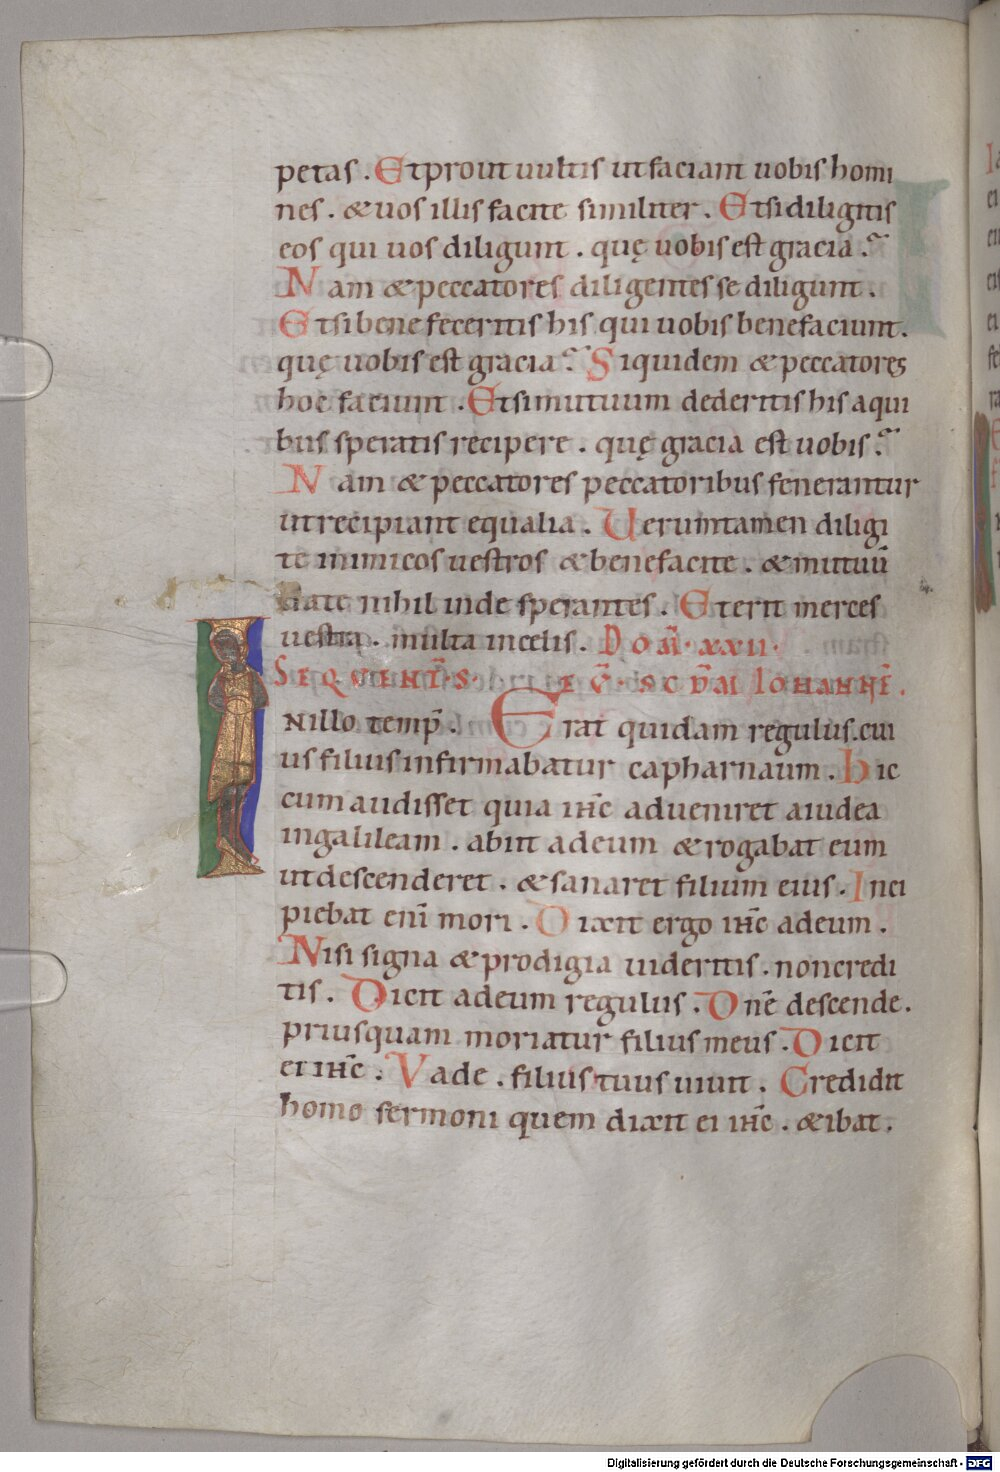 petas . Et prout uultis ut faciant uobis homi
nes . & uos illis facite similiter . Et si diligitis
eos qui uos diligunt . quę uobis est gracia ?
Nam & peccatores diligentes se diligunt .
Et si bene feceritis his qui uobis benefaciunt .
quę uobis est gracia ? Siquidem & peccatores
hoc faciunt . Et si mutuum dederitis his a qui
bus speratis recipere . quę gracia est uobis ?
Nam & peccatores peccatoribus fenerantur
ut recipiant equalia . Ueruntamen diligi
te inimicos uestros & benefacite . & mutuū
date nihil inde sperantes . Et erit merces
uestra . multa in celis . DOM̄ . XXII .
SEQUENT̄ . S . EV̄ . SCD̄M IOHANNĒ .
INillo temp̄ . Erat quidam regulus . cui
us filius infirmabatur capharnaum . Hic
cum audisset quia ihc̄ adueniret a iudea
in galileam . abiit ad eum & rogabat eum
ut descenderet . & sanaret filium eius . Inci
piebat eni̅ mori . Dixit ergo ihc̄ ad eum .
Nisi signa & prodigia uideritis . non credi
tis . Dicit ad eum regulus . Dn̄e descende .
priusquam moriatur filius meus . Dicit
ei ihc̄ . Vade . filius tuus uiuit . Credidit
homo sermoni quem dixit ei ihc̄ . & ibat .
Digitalisierung gefördert durch die Deutsche Forschungsgemeinschaft - DFG